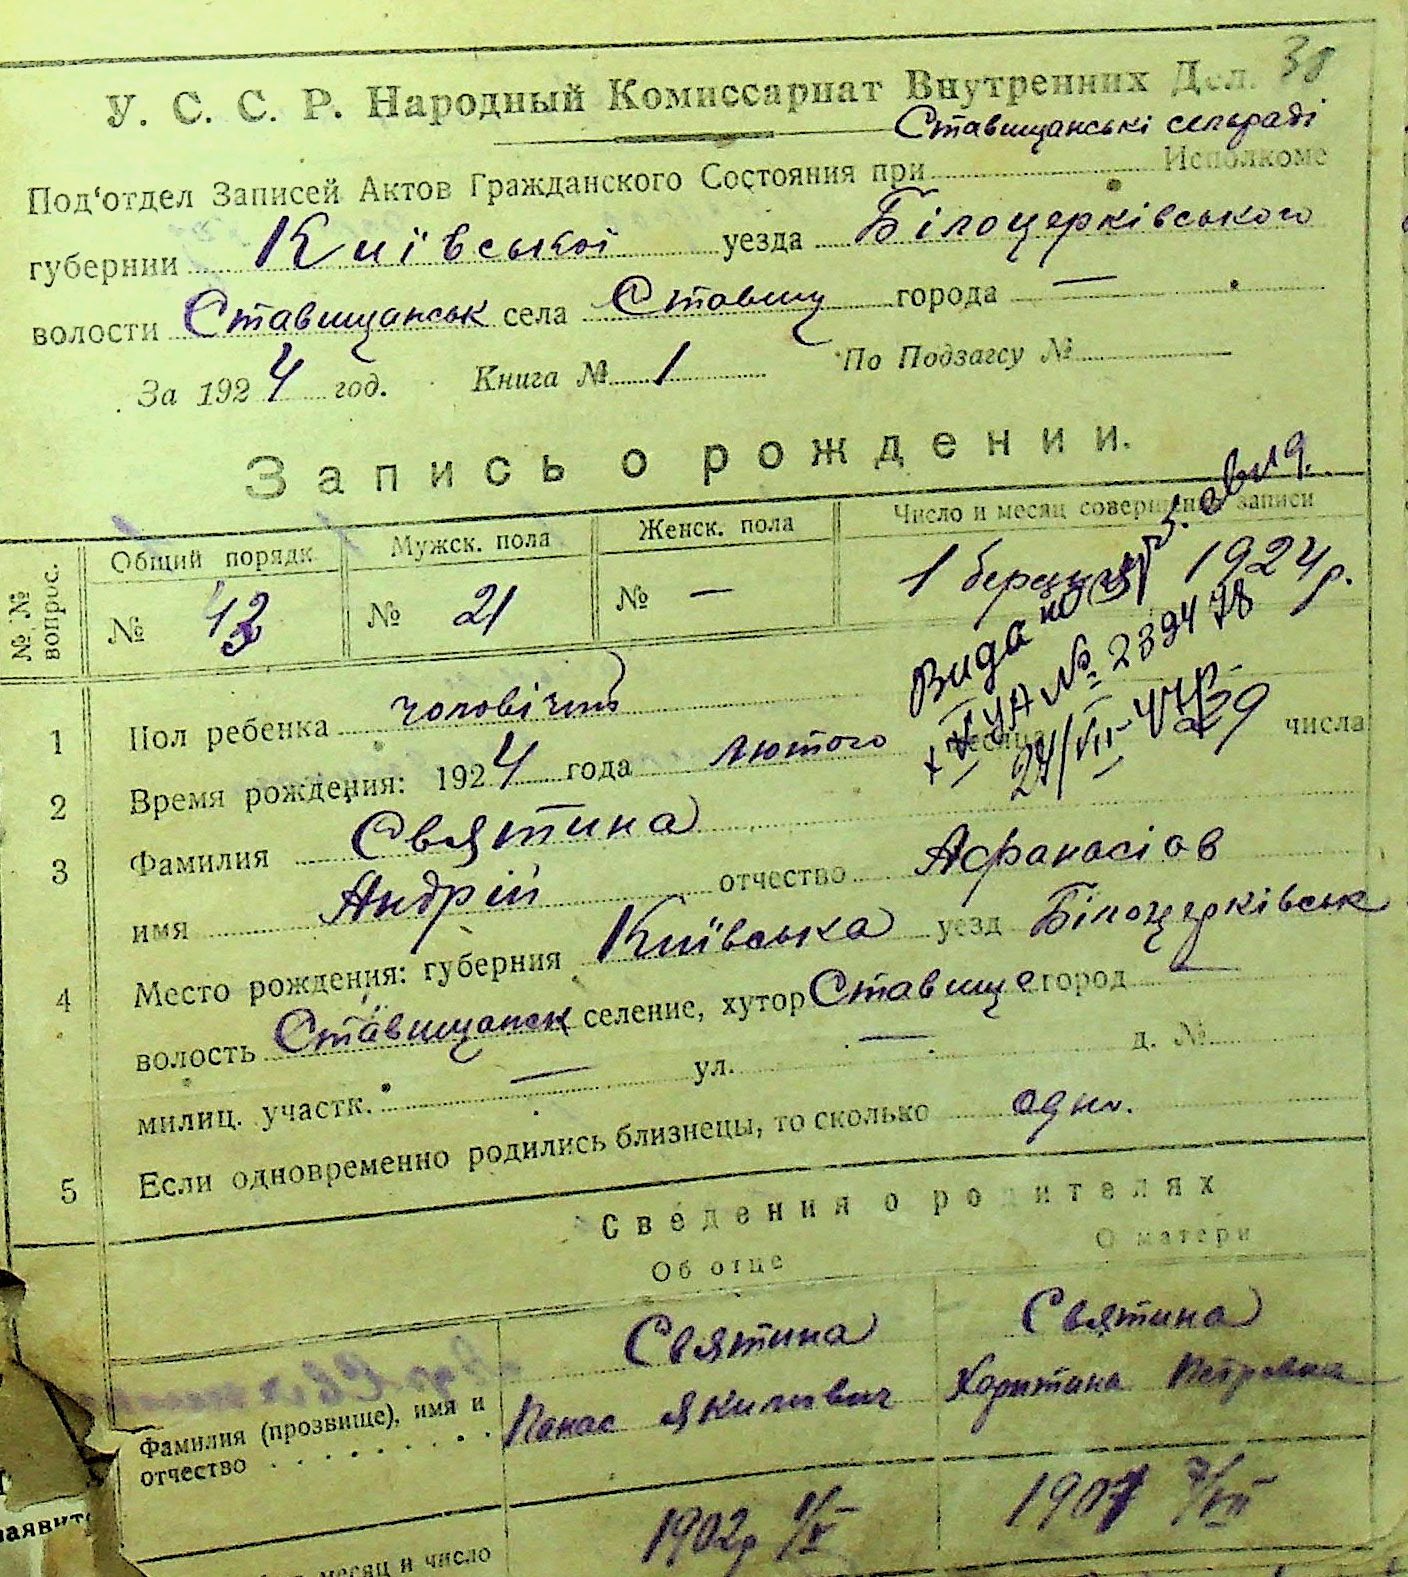 38
У. С. С. Р. Народный Комиссариат Внутренних Дел.
Ставищанські сельраді
Под'отдел Записей Актов Гражданского Состояния при Исполкоме
губернии Київської уезда Білоцерківського
волости Ставищанськ села Ставищ города —
За 1924 год. Книга № 1 По Подзагсу №
Запись о рождении.
№№ вопрос. Общий порядк. Мужск. пола Женск. пола Число и месяц совершения записи
№ 43 № 21 № — 1 березня 1924 р.
Видано
УА № 239478
24/VII-47 р.
1 Пол ребенка чоловічий
2 Время рождения: 1924 года лютого месяца 29 числа
3 Фамилия Святина
имя Андрій отчество Афанасіов
4 Место рождения: губерния Київська уезд Білоцерківськ
волость Ставищанск селение, хутор Ставище город —
милиц. участк. — ул. — д. №
5 Если одновременно родились близнецы, то сколько одно.
Сведения о родителях
Об отце О матери
Святина Святина
Фамилия (прозвище), имя и Панас Якимович Харитина Петровна
отчество
1902р 1/V 1907 7/VII
месяц и число
заявит